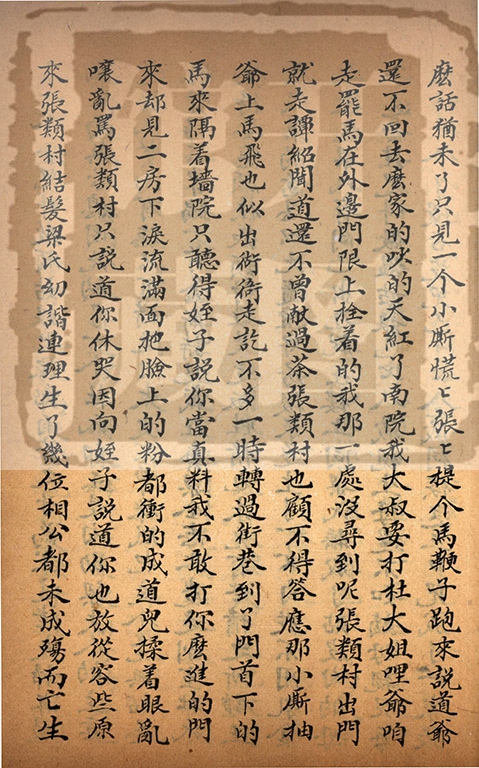 麽話猶未了只見一个小厮慌〻張〻提个馬鞭子跑來說道爺
還不回去麽家的吵的天紅了南院我大叔要打杜大姐哩爺咱
走罷馬在外邊門限上拴着的我那一處沒尋到呢張類村出門
就走譚紹聞道還不曾献過茶張類村也顧不得答應那小厮抽
爺上馬飛也似出衚衕走訖不多一時轉過街巷到了門首下的
馬來隔着墻院只聽得姪子說你當真料我不敢打你麽進的門
來却見二房下淚流滿面把臉上的粉都衝的成道兒揉着眼亂
嚷亂罵張類村只說道你休哭因向姪子說道你也放從容些原
來張類村結髮梁氏幼諧連理生了幾位相公都未成殤而亡生